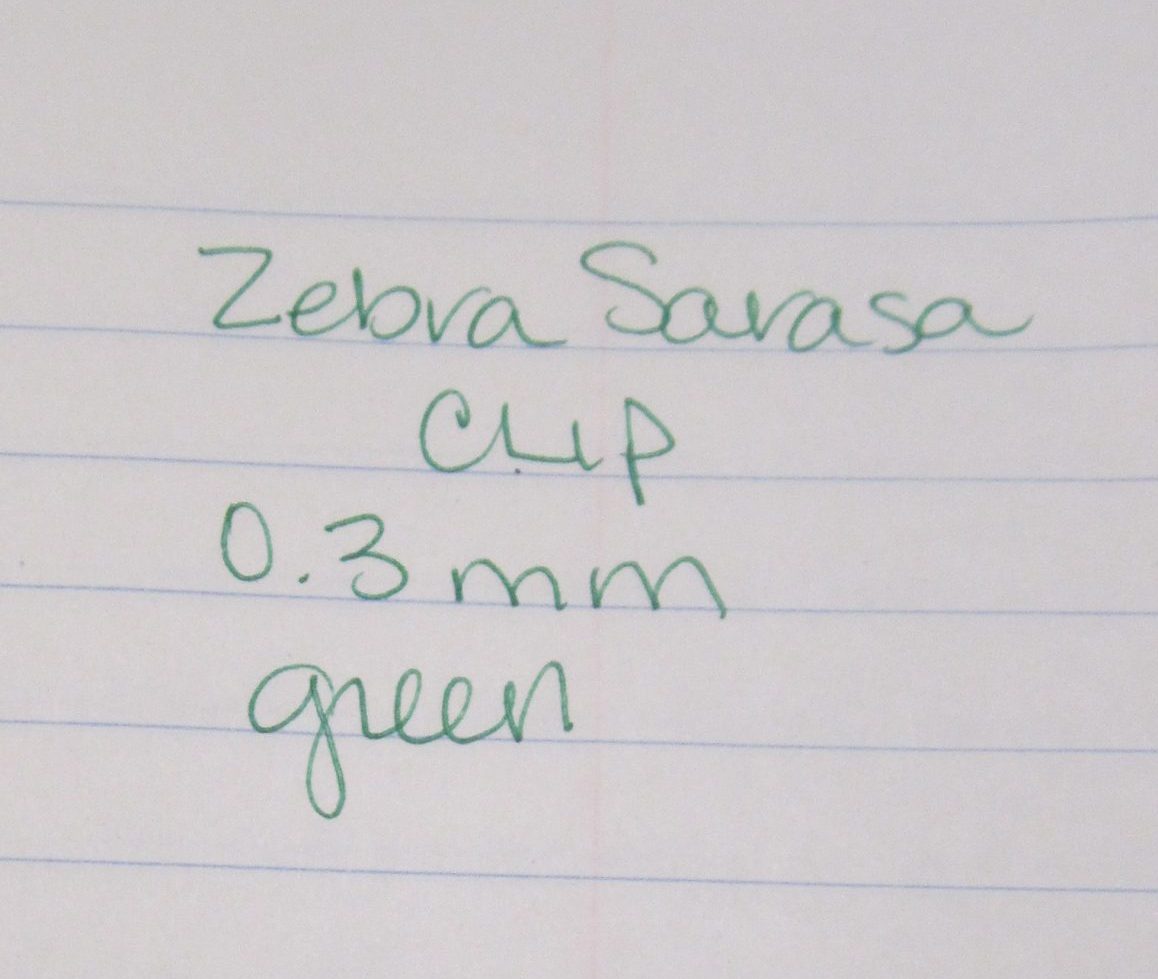 Zebra Sarasa
Clip
0.3mm
green